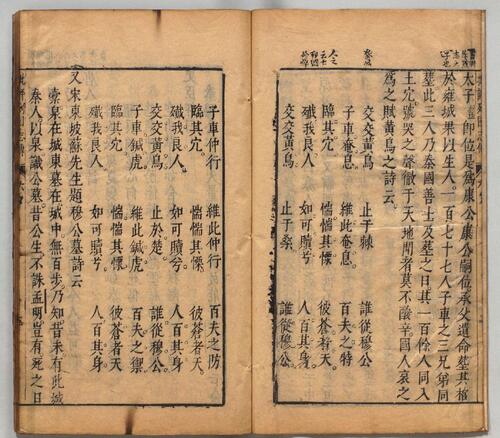 太子罃即位是爲康公康公嗣位承父遺命塟其棺
於雍城果以生人一百七十七人子車之三兄弟同
塟此三人乃秦國善士及塟之日其一百餘人同入
王穴號哭之聲徹于天地聞者莫不酸辛國人哀之
爲之賦黃鳥之詩云
交交黃鳥 止于棘 誰從穆公
子車奄息 維此奄息 百夫之特
臨其穴 惴惴其慄 彼蒼者天
殲我良人 如可贖兮 人百其身
交交黃鳥 止于桒 誰從穆公
子車仲行 維此仲行 百夫之防
臨其穴 惴惴其慄 彼蒼者天
殲我良人 如可贖兮 人百其身
交交黃鳥 止於楚 誰從穆公
子車鍼虎 維此鍼虎 百夫之禦
臨其穴 惴惴其慄 彼蒼者天
殲我良人 如可贖兮 人百其身
又宋東坡蘇先生題穆公墓詩云
橐泉在城東墓在城中無百步乃知昔未有此城
秦人以泉識公墓昔公生不誅孟明豈有死之日